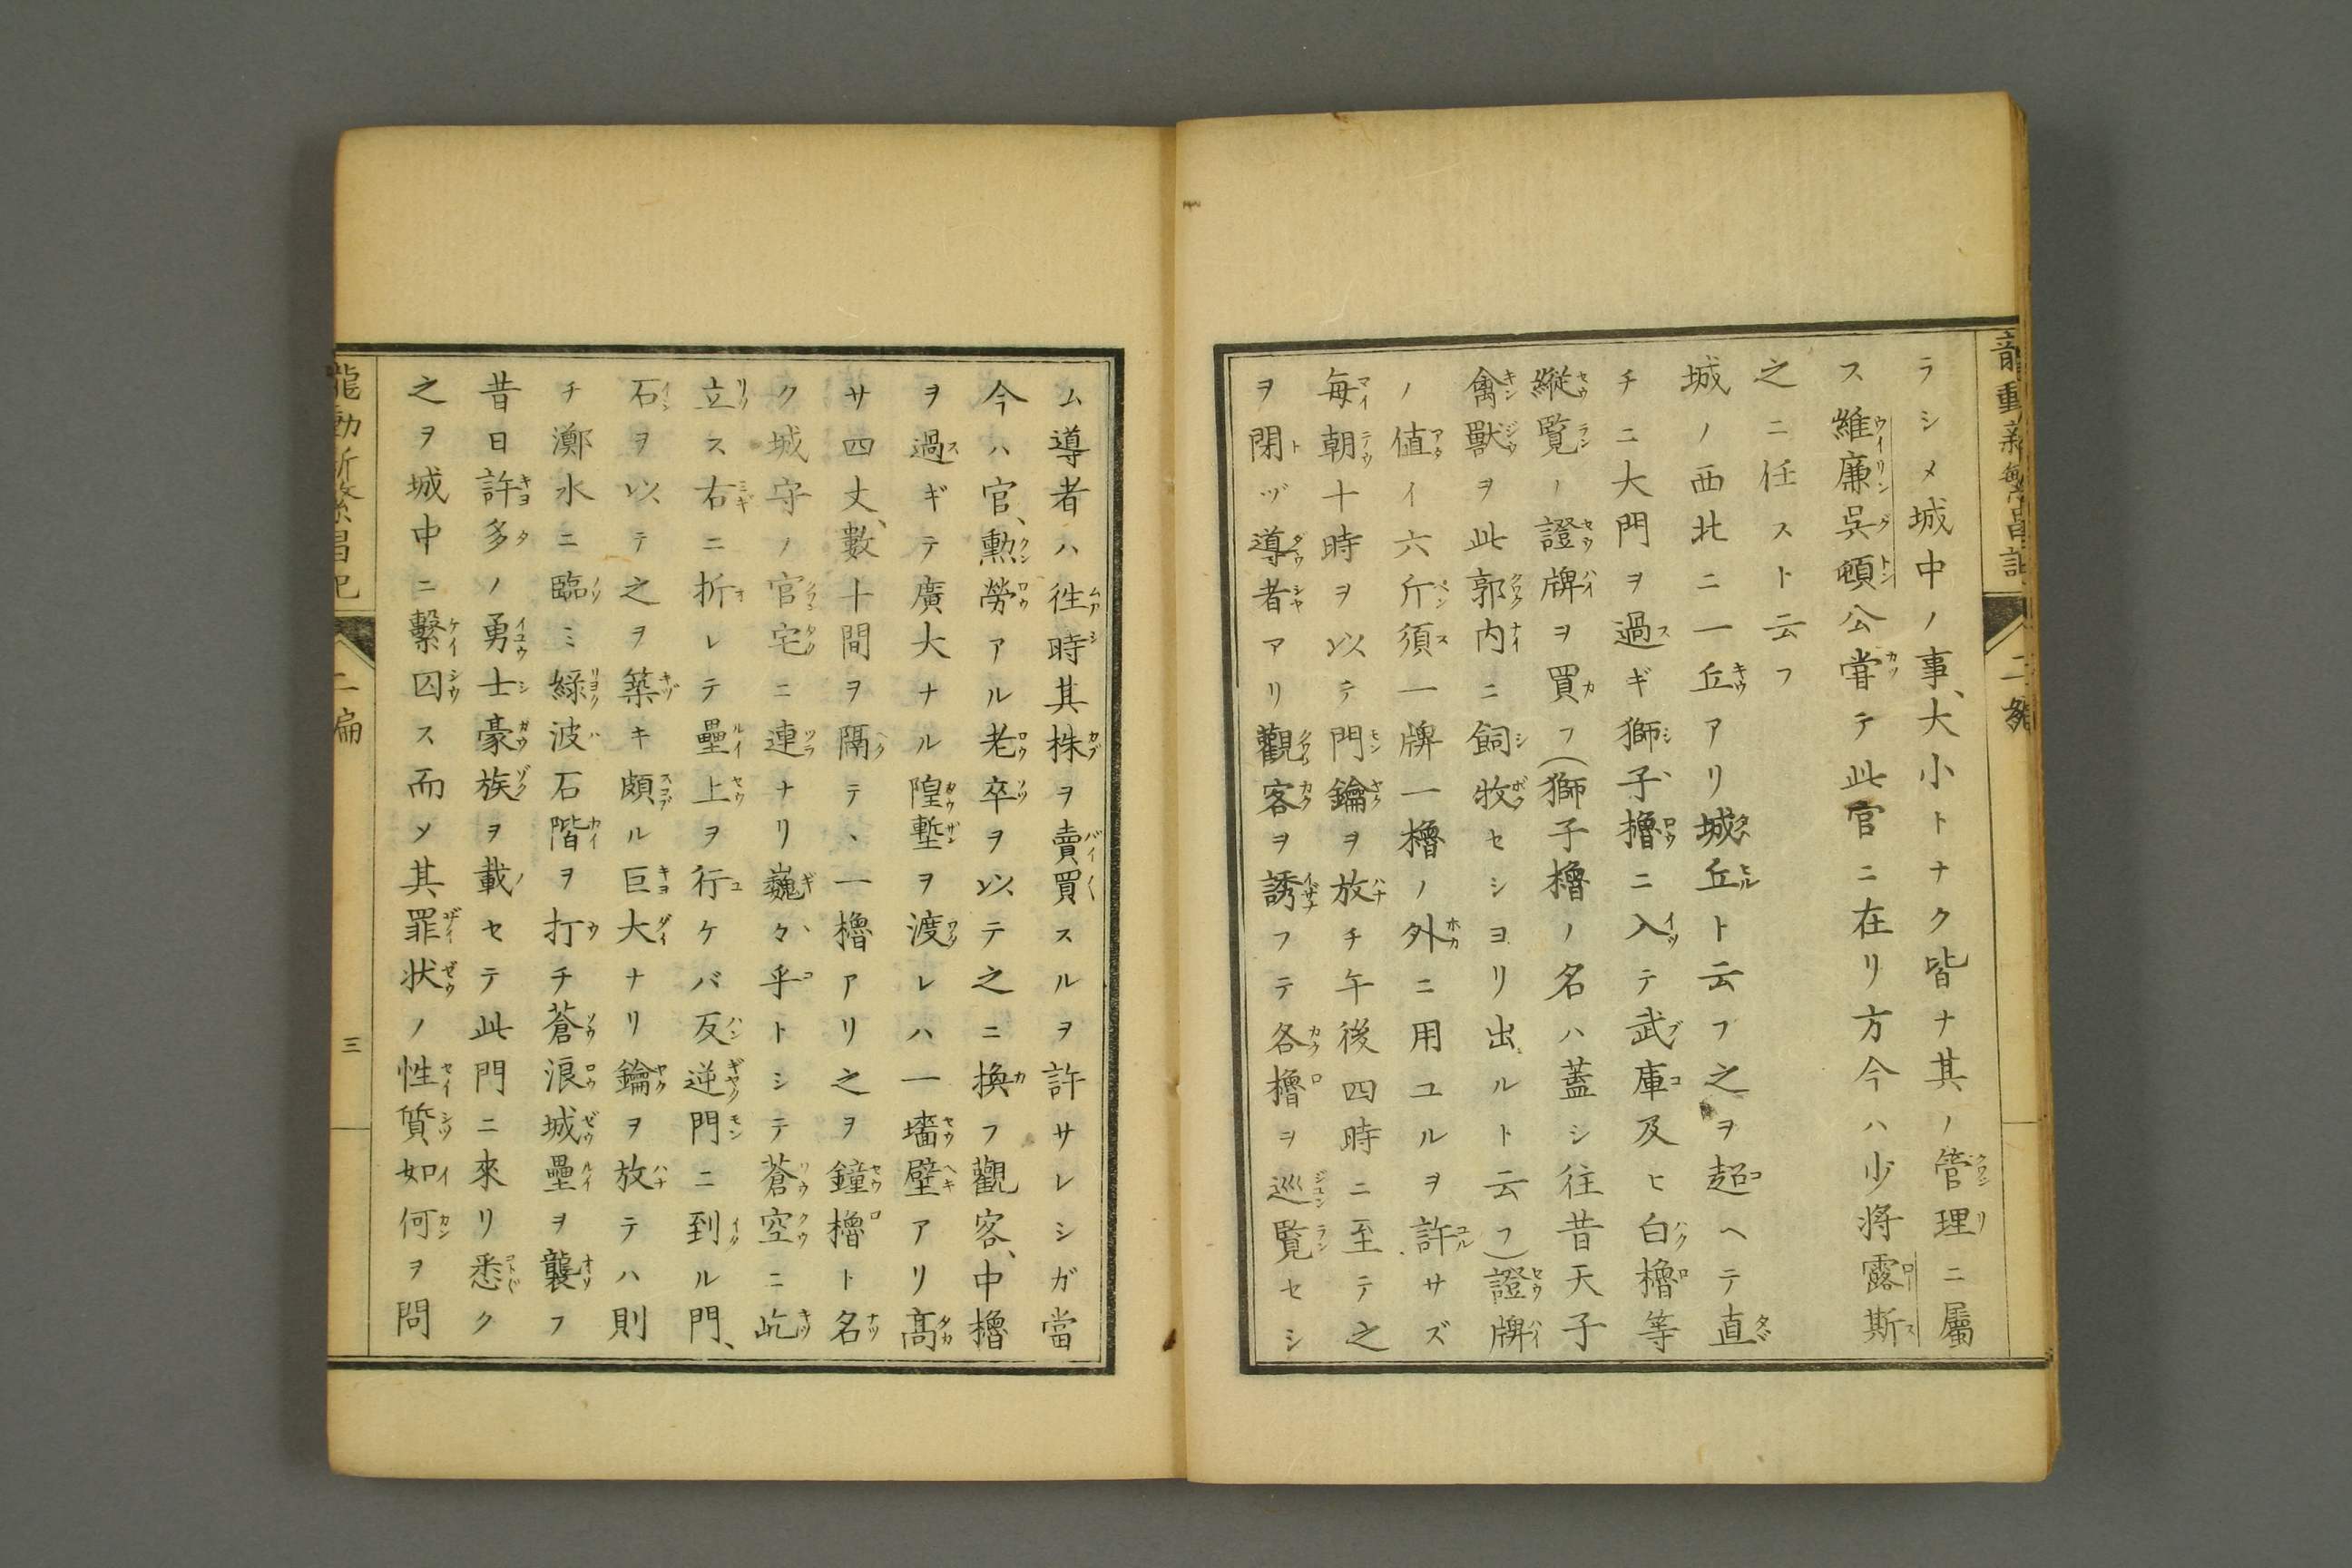 龍動新繁昌記 二編
ラシメ城中ノ事、大小トナク皆ナ其ノ管理ニ屬
ス維廉呉頓公甞テ此官ニ在リ方今ハ少将露斯
之ニ任スト云フ
城ノ西北ニ一丘アリ城丘ト云フ之ヲ超ヘテ直
チニ大門ヲ過ギ獅子櫓ニ入テ武庫及ヒ白櫓等
縦覧ノ證牌ヲ買フ(獅子櫓ノ名ハ蓋シ往昔天子
禽獸ヲ此郭内ニ飼牧セシヨリ出ルト云フ)證牌
ノ値イ六斤須一牌一櫓ノ外ニ用ユルヲ許サズ
毎朝十時ヲ以テ門鑰ヲ放チ午後四時ニ至テ之
ヲ閉ヅ導者アリ觀客ヲ誘フテ各櫓ヲ巡覧セシ
ム導者ハ徃時其株ヲ賣買スルヲ許サレシガ當
今ハ官、勲勞アル老卒ヲ以テ之ニ換フ觀客、中櫓
ヲ過ギテ廣大ナル隍塹ヲ渡レハ一墻壁アリ髙
サ四丈、數十間ヲ隔テヽ一櫓アリ之ヲ鐘櫓ト名
ク城守ノ官宅ニ連ナリ巍々乎トシテ蒼空ニ屹
立ス右ニ折レテ壘上ヲ行ケバ反逆門ニ到ル門、
石ヲ以テ之ヲ築キ頗ル巨大ナリ鑰ヲ放テハ則
チ瀕水ニ臨ミ緑波石階ヲ打チ蒼浪城壘ヲ襲フ
昔日許多ノ勇士豪族ヲ載セテ此門ニ來リ悉ク
之ヲ城中ニ繋囚ス而ソ其罪状ノ性質如何ヲ問
龍動新繁昌記 二編 三